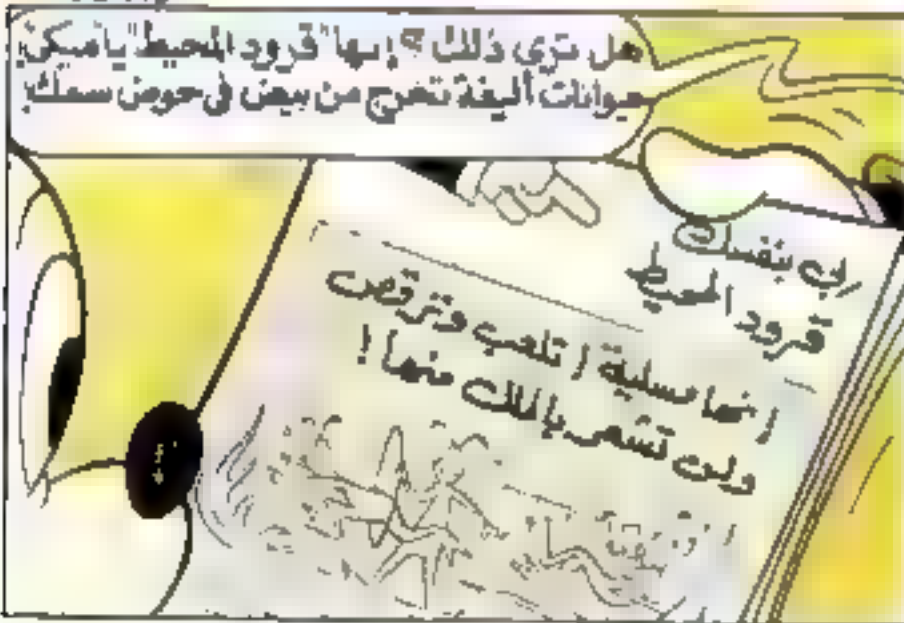 هل ترى ذلك؟ إنها "قرود المحيط" يا ميكي!
حيوانات أليفة تخرج من بيض في حوض سمك!
ربي بنفسك
قرود المحيط
إنها مسلية! تلعب وترقص
ولن تشعر بالملل منها!